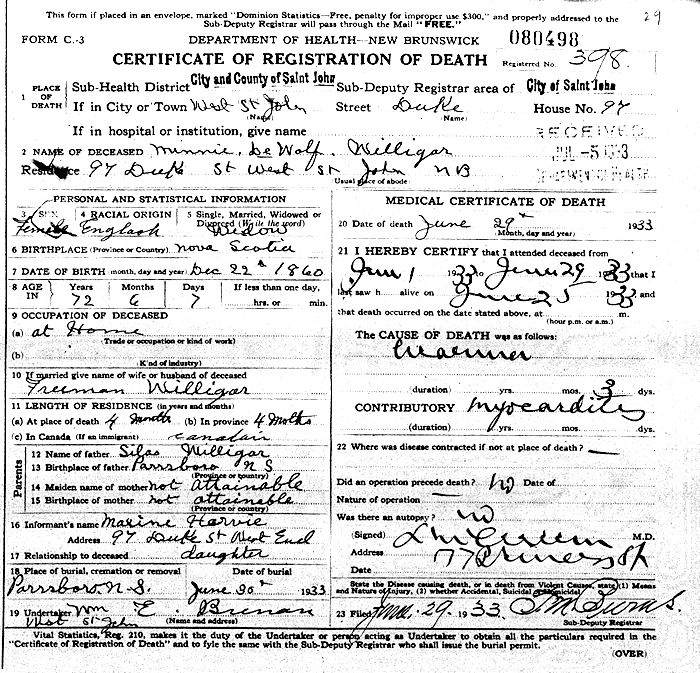 This form if placed in an envelope, marked "Dominion Statistics—Free, penalty for improper use $300," and properly addressed to the
Sub-Deputy Registrar will pass through the Mail "FREE."
29
FORM C.-3
DEPARTMENT OF HEALTH—NEW BRUNSWICK
080498
CERTIFICATE OF REGISTRATION OF DEATH
Registered No. 398
1 PLACE OF DEATH
Sub-Health District City and County of Saint John Sub-Deputy Registrar area of City of Saint John
If in City or Town West St John Street Duke House No. 97
(Name) (Name)
If in hospital or institution, give name
RECEIVED
2 NAME OF DECEASED Minnie De Wolf Willigar
JUL -5 1933
Residence 97 Duke St West St John N B
Usual place of abode)
PERSONAL AND STATISTICAL INFORMATION
3 SEX 4 RACIAL ORIGIN 5 Single, Married, Widowed or Divorced (Write the word)
Female English Widow
6 BIRTHPLACE (Province or Country) Nova Scotia
7 DATE OF BIRTH (month, day and year) Dec 22nd 1860
8 AGE IN Years Months Days If less than one day,
72 6 7 hrs. or min.
9 OCCUPATION OF DECEASED
(a) at Home
Trade or occupation or kind of work)
(b)
Kind of industry)
10 If married give name of wife or husband of deceased
Freeman Willigar
11 LENGTH OF RESIDENCE (in years and months)
(a) At place of death 4 Months (b) In province 4 Months
(c) In Canada (If an immigrant)
Parents
12 Name of father Silas Willigar
13 Birthplace of father Parrsboro N S
(Province or country)
14 Maiden name of mother not attainable
15 Birthplace of mother not attainable
(Province or country)
16 Informant's name Maxine Harvie
Address 97 Duke St West End
17 Relationship to deceased daughter
18 Place of burial, cremation or removal Date of burial
Parrsboro, N.S. June 30th 1933
19 Undertaker Wm E. Brenan
West St John (Name and address)
MEDICAL CERTIFICATE OF DEATH
20 Date of death June 29th 1933
(Month, day and year)
21 I HEREBY CERTIFY that I attended deceased from
June 1 1933 to June 29 1933 that I
last saw h alive on June 25 1933 and
that death occurred on the date stated above, at m.
(hour p.m. or a.m.)
The CAUSE OF DEATH was as follows:
(duration) yrs. mos. 3 dys.
CONTRIBUTORY Myocarditis
(duration) yrs. mos. dys.
22 Where was disease contracted if not at place of death? —
Did an operation precede death? No Date of
Nature of operation —
Was there an autopsy? no
(Signed) M.D.
Address 77 Princess St
Date
State the Disease causing death, or in death from Violent Causes, state (1) Means
and Nature of Injury, (2) whether Accidental, Suicidal or Homicidal
23 Filed June 29 1933
Sub-Deputy Registrar
Vital Statistics, Reg. 210, makes it the duty of the Undertaker or person acting as Undertaker to obtain all the particulars required in the
"Certificate of Registration of Death" and to fyle the same with the Sub-Deputy Registrar who shall issue the burial permit.
(OVER)